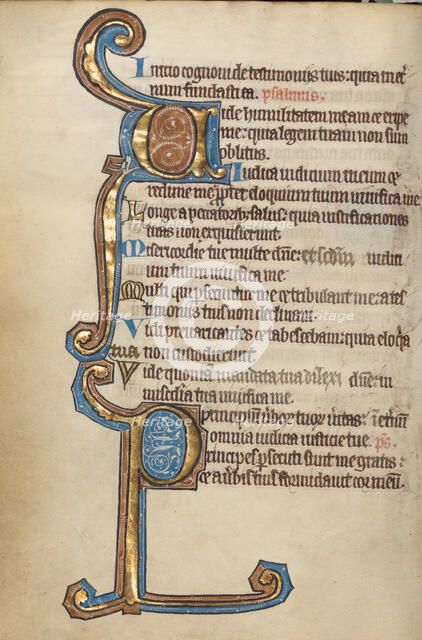 Initio cognoui de testimoniis tuis: quia in et
num fundasti ea. psalmus.
Vide humilitatem meam et eripe
me: quia legem tuam non sum
oblitus.
Iudica iudicium meum et
redime me: propter eloquium tuum uiuifica me.
Longe a peccatoribus salus: quia iustificationes
tuas non exquisierunt.
Misericordie tue multe dne: iudici
um tuum uiuifica me.
Multi qui persequntur me et tribulant me: a tes
timoniis tuis non declinaui.
Vidi preuaricantes et tabescebam: quia eloqa
tua non custodierunt.
Vide quoniam mandata tua dilexi dne: in
misericordia tua uiuifica me.
Principium uerbor tuor ueritas: in etnum
omnia iudicia iusticie tue. ps.
Principes persecuti sunt me gratis:
et a uerbis tuis formidauit cor meum.
Heritage
Heritage
Heritage
Heritage